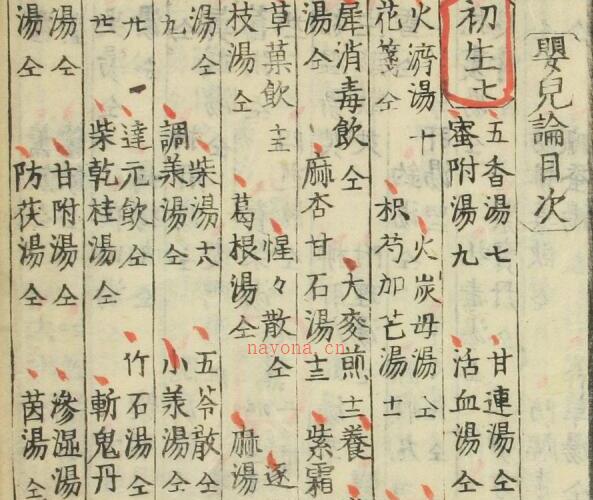 嬰兒論目次
初生七
五香湯七 甘連湯仝
蜜附湯九 活血湯仝
火濟湯十 火炭母湯仝
仝 枳芍加芒湯十一
犀消毒飲仝 大麥煎十二 養
湯仝 麻杏甘石湯十三 紫霜
草菓飲十五 惺々散仝 逐
枝湯仝 葛根湯仝 麻湯
湯仝 柴湯十六 五苓散仝
九 調羕湯仝 小羕湯仝
廿 達元飲仝 竹石湯仝
柴乾桂湯仝 斬鬼丹
湯仝 甘附湯仝 滲湿湯
湯仝 防茯湯仝 茵湯仝
nayona.cn